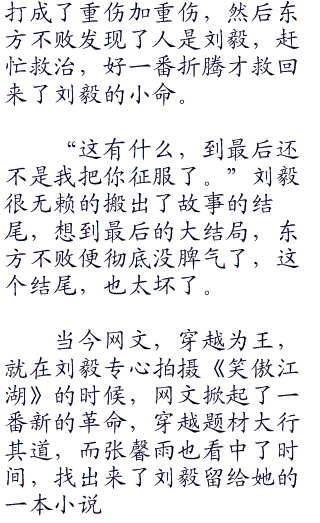 打成了重伤加重伤，然后东
方不败发现了人是刘毅，赶
忙救治，好一番折腾才救回
来了刘毅的小命。
“这有什么，到最后还
不是我把你征服了。”刘毅
很无赖的搬出了故事的结
尾，想到最后的大结局，东
方不败便彻底没脾气了，这
个结尾，也太坏了。
当今网文，穿越为王，
就在刘毅专心拍摄《笑傲江
湖》的时候，网文掀起了一
番新的革命，穿越题材大行
其道，而张馨雨也看中了时
间，找出来了刘毅留给她的
一本小说